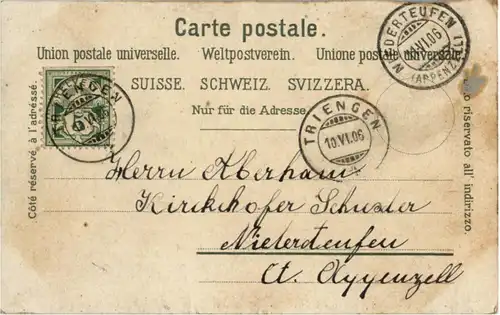 Carte postale.
Union postale universelle. Weltpostverein. Unione postale universale
SUISSE. SCHWEIZ. SVIZZERA.
Nur für die Adresse
Côté réservé à l'adresse.
riservato all' indirizzo.
NIEDERTEUFEN
VI.06
(APPENZ.
TRIENGEN
TRIENGEN
10.VI.06
Herrn Aberham
Kirchhofer Schuster
Niederteufen
Ct. Appenzell